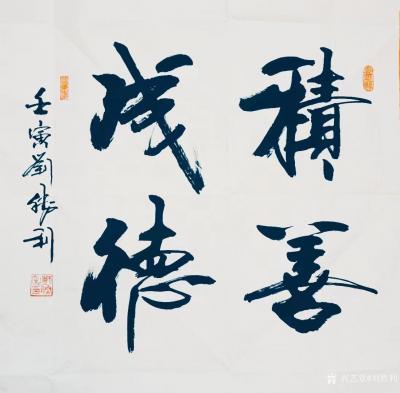 積善
成德
壬寅劉勝利